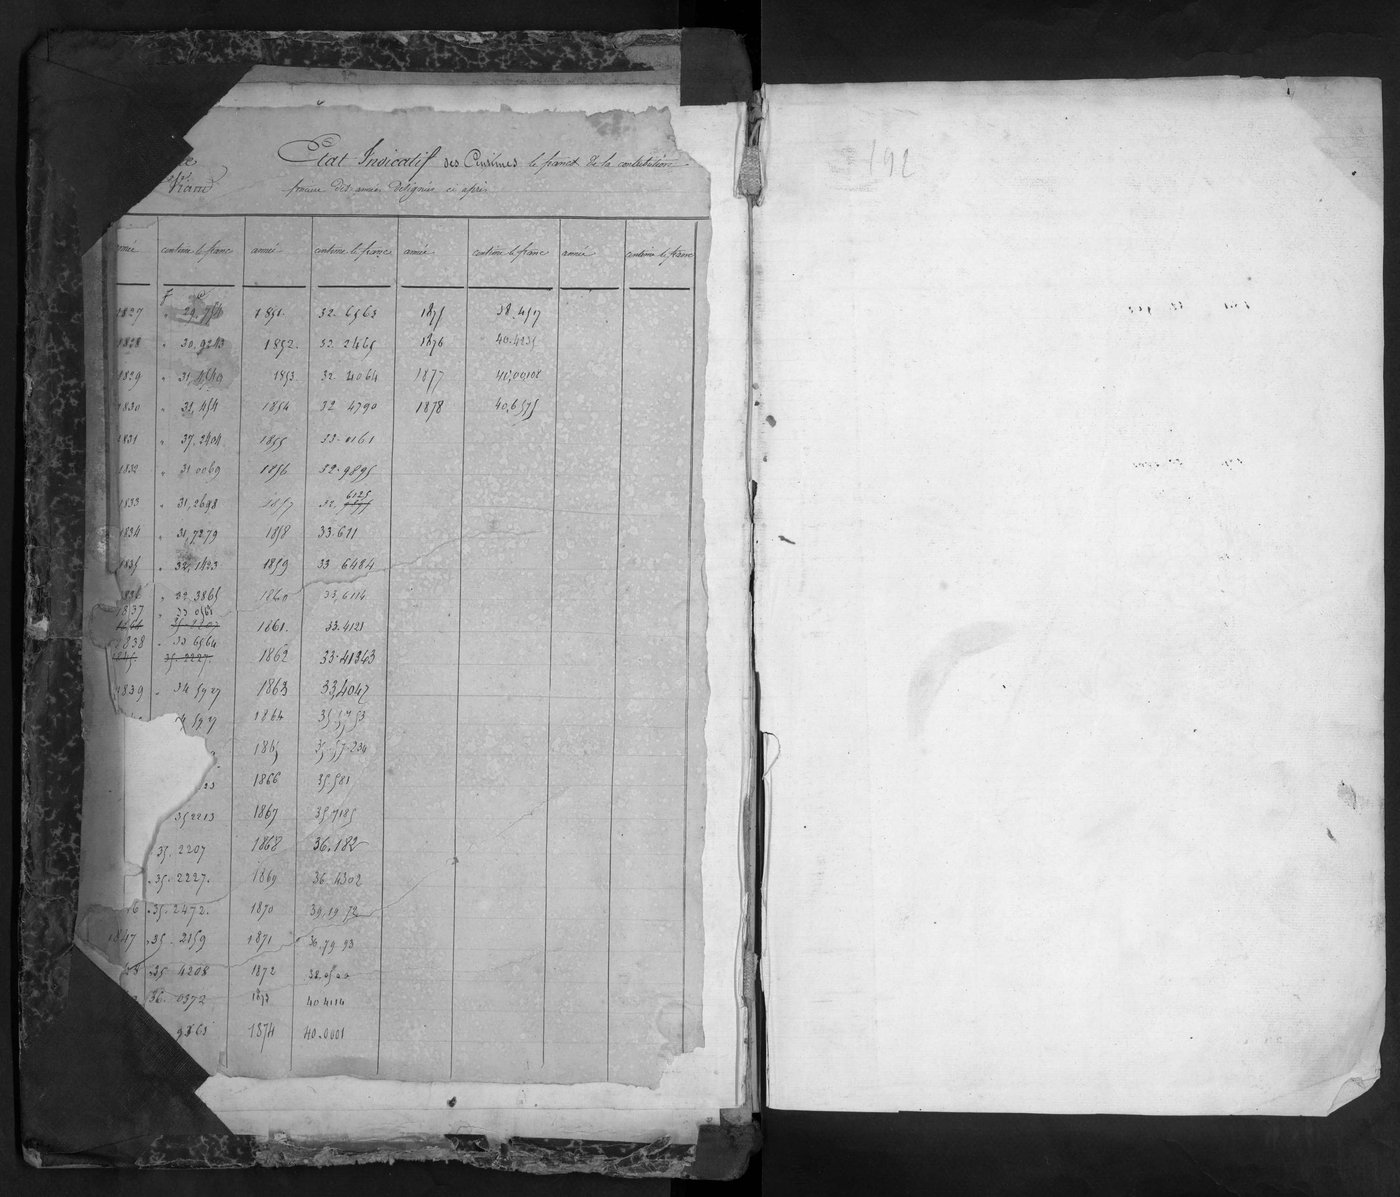 Etat Indicatif des Centimes le franc de la contribution
foncière des années désignées ci après
année centime le franc année centime le franc année centime le franc année centime le franc
1827 29,754 1851. 32. 6563 1875 38.457
1828 " 30,9243 1852. 32. 2465 1876 40.4235
1829 " 31,4540 1853 32 4064 1877 40,00108
1830 " 32,454 1854 32 4790 1878 40,6575
1831 " 37.2404 1855 33.0161
1832 " 31 0069 1856 32.9895
1833 " 31,2698 1857 32. 6125
1834 " 31,7279 1858 33.611
1835 " 32,1423 1859 33 6484
1836 " 32.3865 1860 33,6114
1837 " 33 0561
1844 35.2207 1861. 33.4121
1838 " 33 6564
1845. 35.2227. 1862 33.41343
1839 " 34 5927 1863 33,4047
34 5927 1864 35,5753
1865 35.57.234
1866 35.581
352213 1867 35.7185
35. 2207 1868 36.182
35. 2227. 1869 36.4302
35. 2472. 1870 39,19 72
1847 35. 2159 1871 36.79 93
35 4208 1872
36. 0372 1873 40 4114
1874 40.0001
192